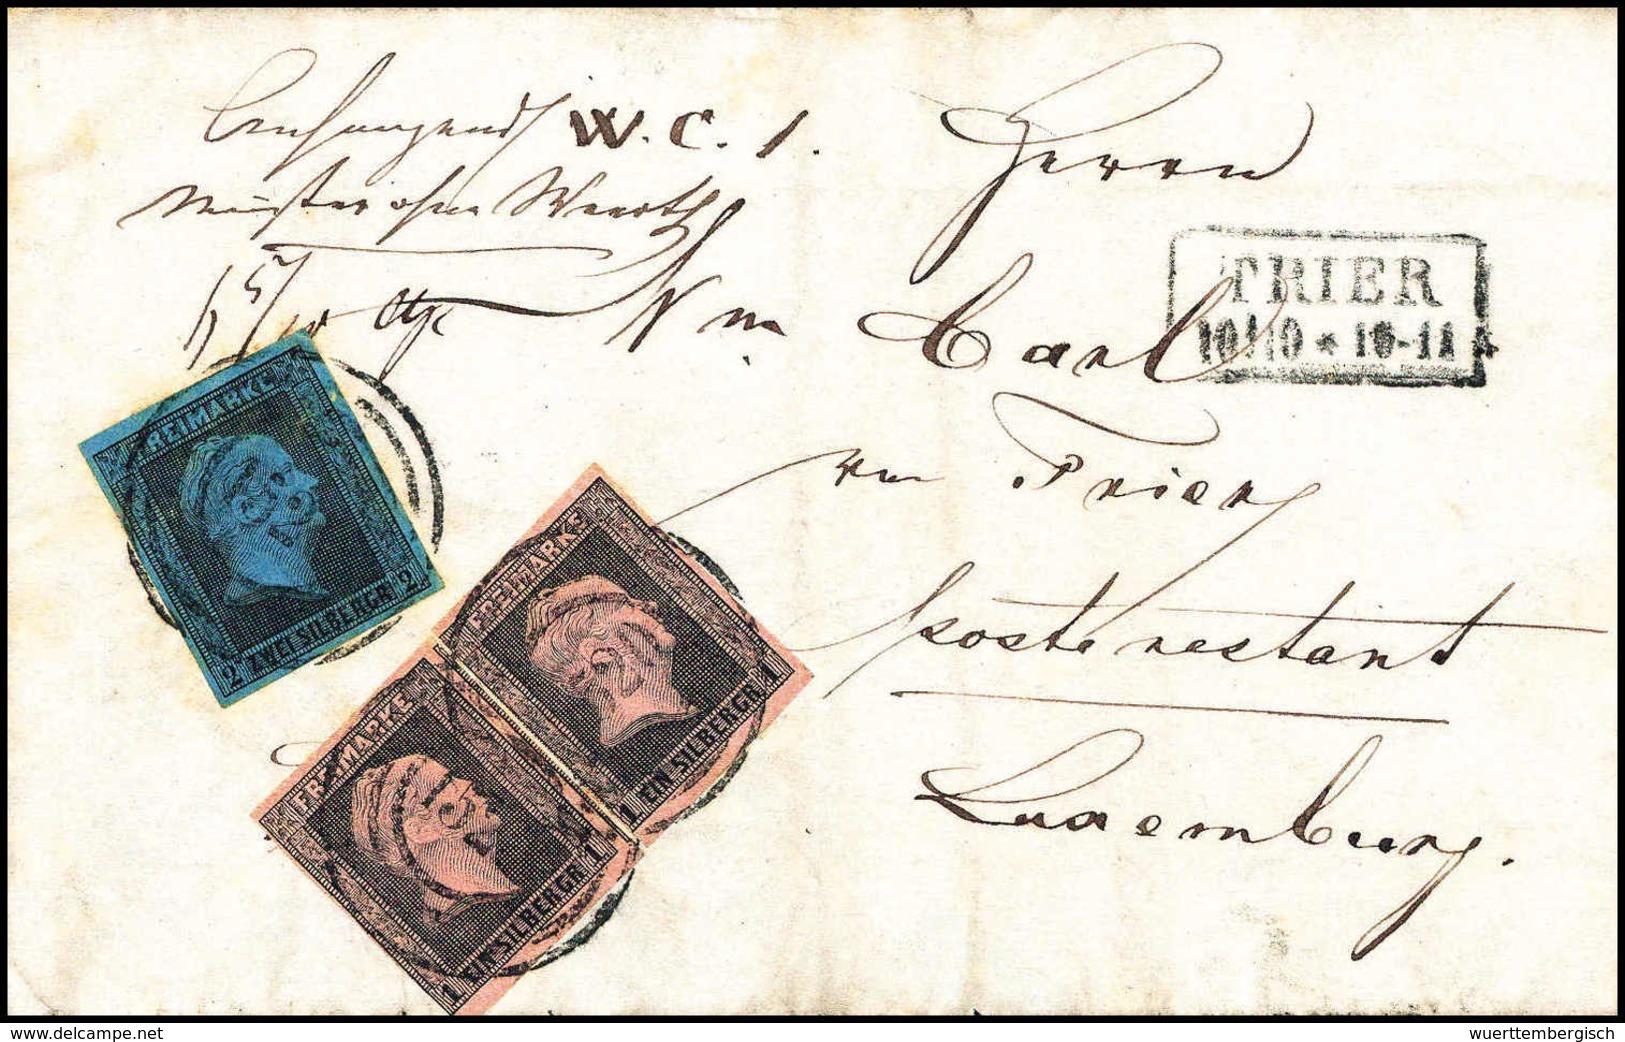 Anhangend W. C. 1.
Muster ohne Werth
Herrn
N m Carl
TRIER
10/10 * 10-11
von Trier
poste restant
Luxemburg.
FREIMARKE
2 ZWEI SILBERGR. 2
FREIMARKE
1 EIN SILBERGR. 1
FREIMARKE
1 EIN SILBERGR. 1
www.delcampe.net
wuerttembergisch